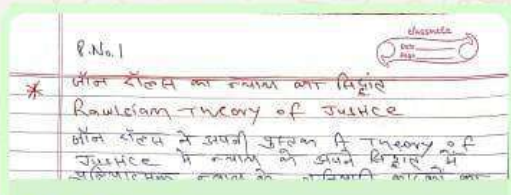 classmate
Date
Page
Q.No.1
* जॉन रॉल्स का न्याय का सिद्धांत
Rawlsian Theory of Justice
जॉन रॉल्स ने अपनी पुस्तक A Theory of
Justice में न्याय के अपने सिद्धांत में